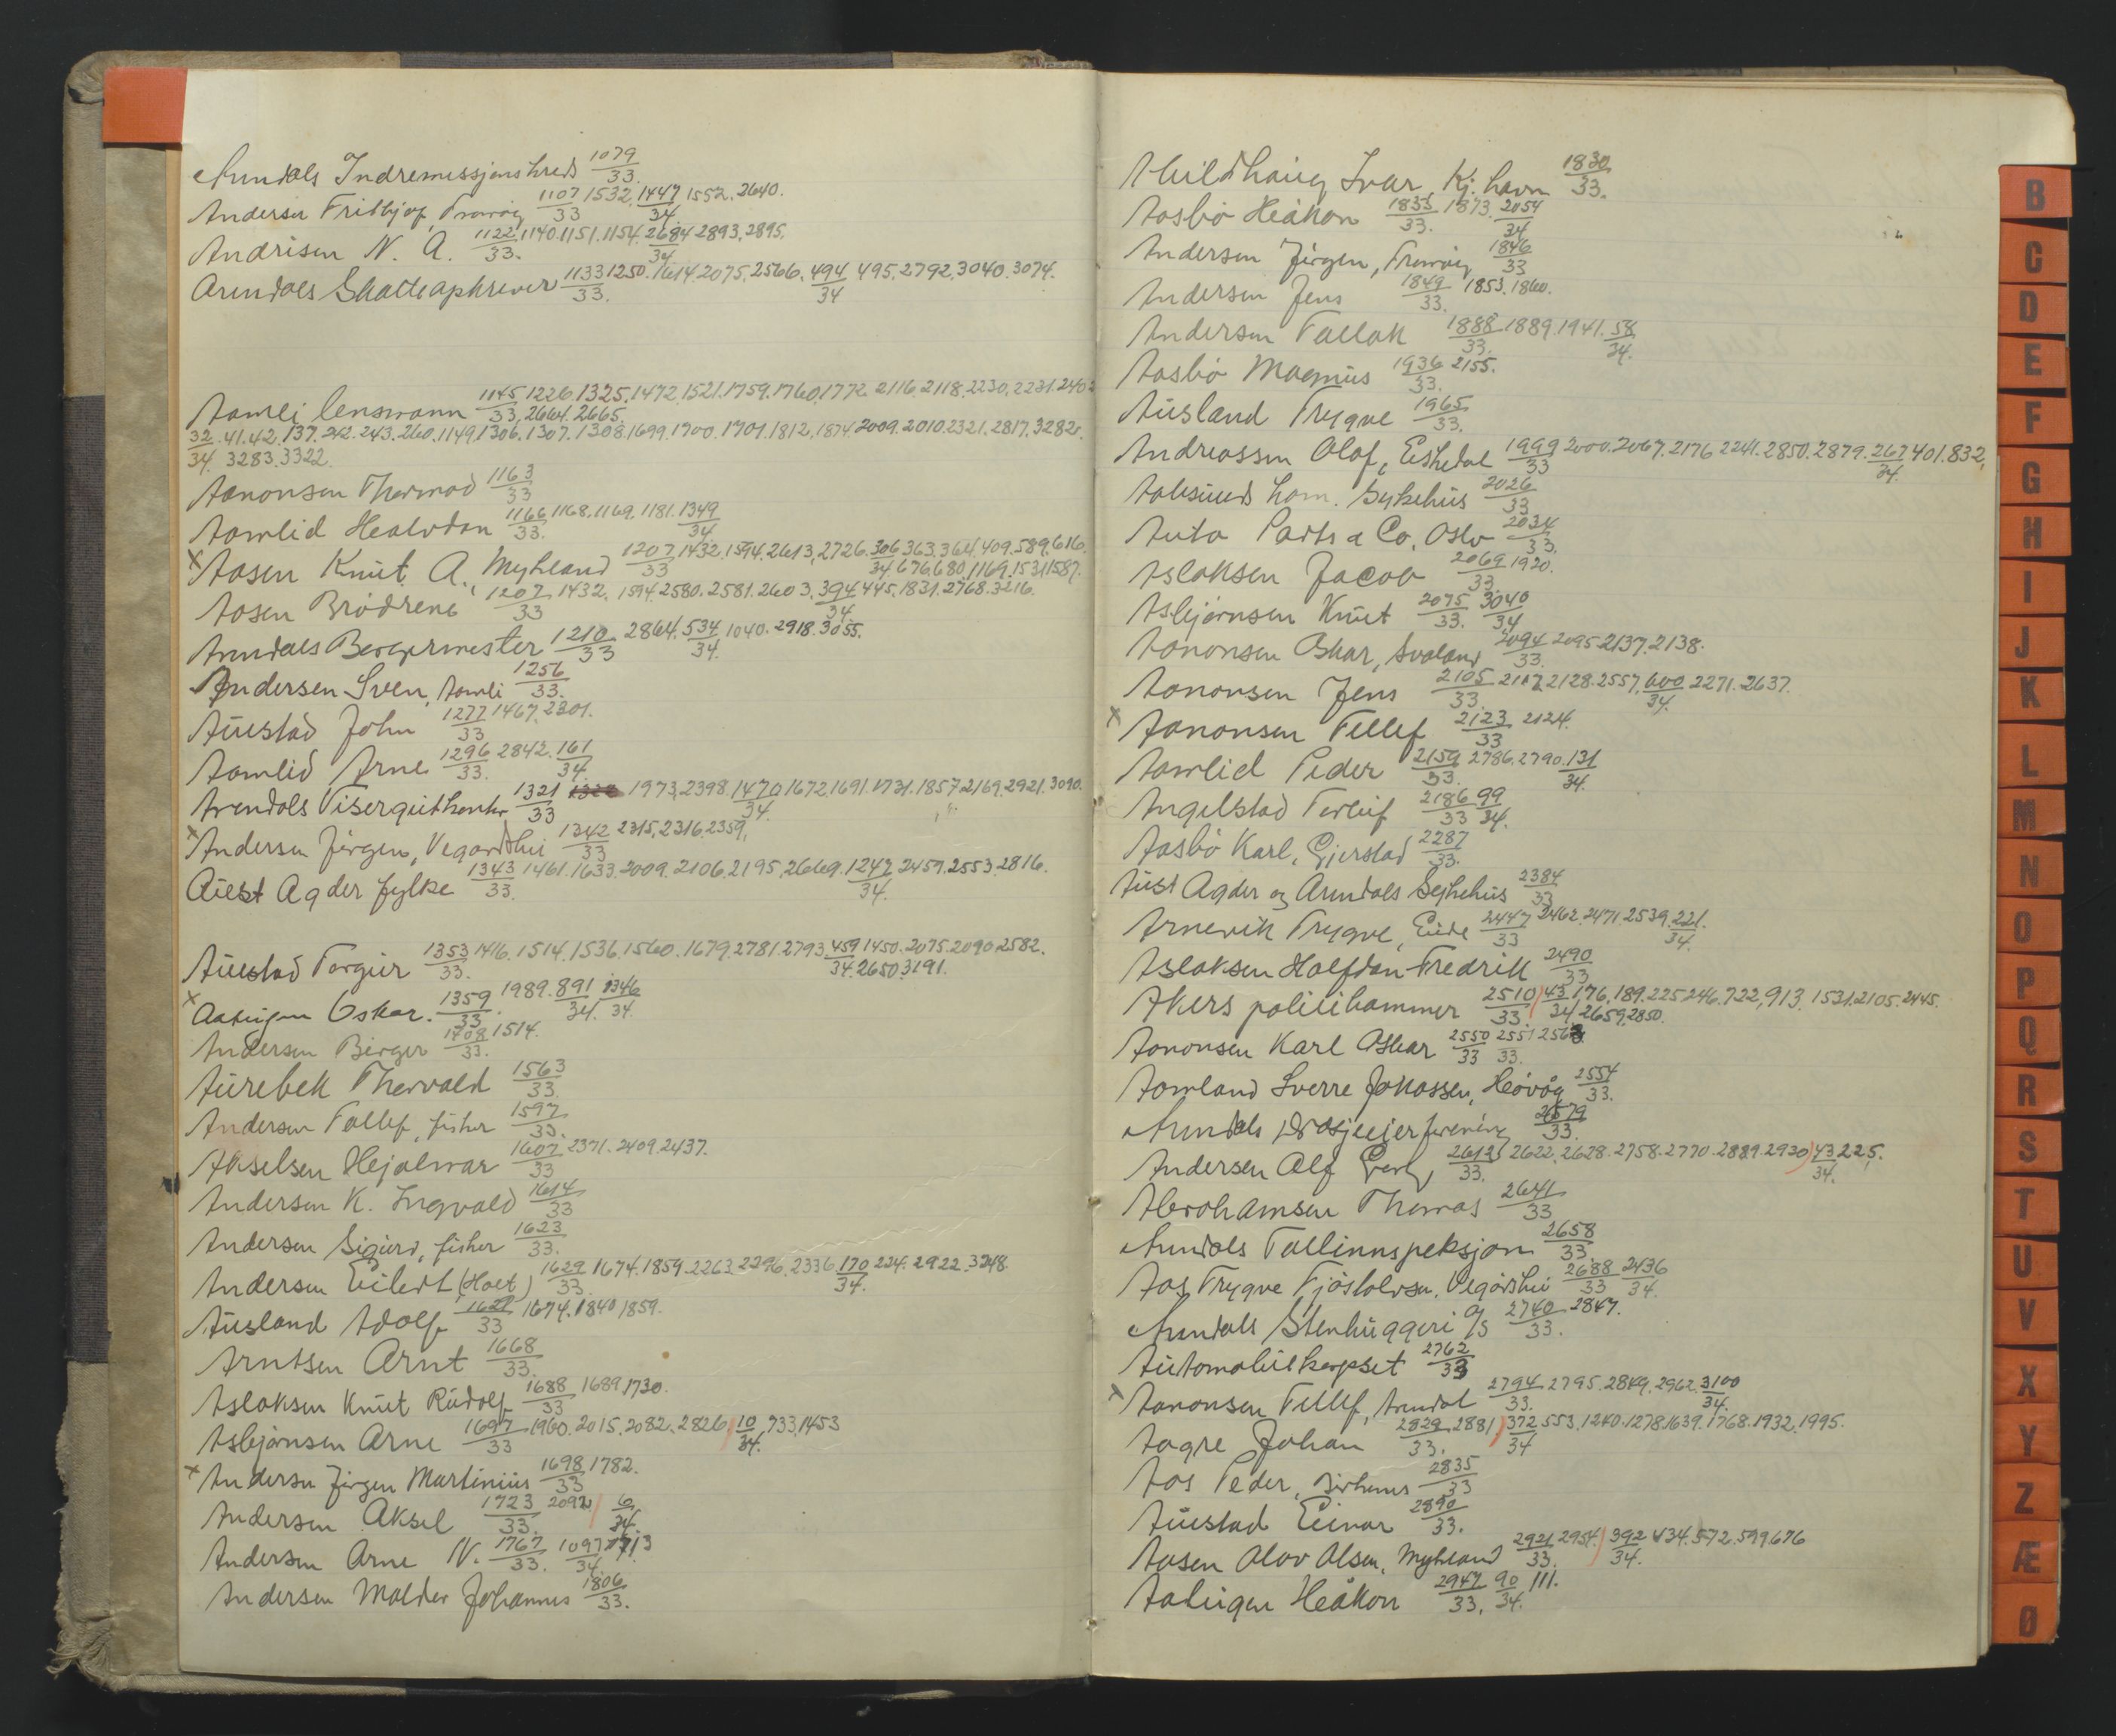 Arendals Indremissjonskreds 1079/33.
Andersen Fritbjof, Tromøy 1107/33 1532. 1447/34 1552. 2640.
Andrisen N. A. 1122/33. 1140. 1151. 1154. 2684/34 2893. 2895.
Arendals Skatteopkrever 1133/33. 1250. 1614. 2075. 2566. 494/34 495. 2792. 3040. 3074.
Aamli lensmann 1145/33, 1226. 1325. 1472. 1521. 1759. 1760. 1772. 2116. 2118. 2230. 2231. 2403
2664. 2665.
32/34. 41. 42. 137. 242. 243. 260. 1149. 1306. 1307. 1308. 1699. 1700. 1701. 1812. 1874. 2009. 2010. 2321. 2817. 3282.
3283. 3322.
Aanonsen Thormod 1163/33
Aamlid Halvdan 1166/33. 1168. 1169. 1181. 1349/34
x Aasen Knut A., Myhland 1207/33 1432. 1594. 2613. 2726. 306/34 363. 364. 409. 589. 616.
676. 680. 1169. 1531. 1587.
Aasen Brødrene 1207/33 1432. 1594. 2580. 2581. 2603. 394/34 445. 1831. 2768. 3216.
Arendals Borgermester 1210/33 2864. 534/34 1040. 2918. 3055.
Andersen Sven, Aamli 1256/33.
Austad John 1277/33 1467. 2301.
Aamlid Arne 1296/33. 2842. 161/34.
Arendals Visergutkontor 1321/33 1973. 2398. 1470/34. 1672. 1691. 1731. 1857. 2169. 2921. 3090.
x Andersen Jørgen, Vegårdshei 1342/33 2315. 2316. 2359.
Aust Agder fylke 1343/33. 1461. 1633. 2009. 2106. 2195. 2669. 1247/34. 2459. 2553. 2816.
Austad Torgur 1353/33. 1416. 1514. 1536. 1560. 1679. 2781. 2793. 459/34 1450. 2075. 2090. 2582.
2650. 3191.
x Oskar. 1359/33. 1989. 891/34. 1346/34.
Andersen Birger 1408/33. 1514.
Aurebek Thorvald 1563/33.
Andersen Tallef, fisker 1597/33.
Akselsen Hjalmar 1607/33 2371. 2409. 2437.
Andersen K. Ingvald 1614/33
Andersen Sigurd, fisker 1623/33.
Andersen Eilert (Holt) 1629/33. 1674. 1859. 2263. 2296. 2336. 170/34. 224. 2922. 3248.
Ausland Adolf 1629/33 1674. 1840. 1859.
Arntsen Arnt 1668/33.
Aslaksen Knut Rudolf 1688/33 1689. 1730.
Asbjørnsen Arne 1697/33 1960. 2015. 2082. 2826. 10/34. 733. 1453
x Andersen Jørgen Martinius 1698/33 1782.
Andersen Aksel 1723/33. 2092 6/34
Andersen Arne N. 1767/33. 1097/34. 1713
Andersen Molder Johannes 1806/33.
Abildhaug Ivar, Kj.havn 1830/33.
Aasbø Håkon 1835/33. 1873. 2054/34
Andersen Jørgen, Tromøy 1846/33
Andersen Jens 1849/33. 1853. 1860.
Andersen Tallak 1888/33. 1889. 1941. 58/34.
Aasbø Magnus 1936/33. 2155.
Ausland Trygve 1965/33.
Andreassen Olaf, Eskedal 1999/33 2000. 2067. 2176. 2241. 2850. 2879. 267/34. 401. 832,
Aalesunds kom. Sykehus 2026/33
Auto Parts & Co, Oslo 2034/33.
Aslaksen Jacob 2069/33 1920.
Asbjørnsen Knut 2075/33. 3040/34
Aanonsen Oskar, Svaland 2094/33. 2095. 2137. 2138.
Aanonsen Jens 2105/33. 2117. 2128. 2557. 600/34. 2271. 2637.
x Aanonsen Tellef 2123/33 2124.
Aamlid Peder 2159/33. 2786. 2790. 131/34.
Angelstad Terleif 2186/33 99/34.
Aasbø Karl, Gjerstad 2287/33.
Aust Agder og Arendals Sykehus 2384/33
Arnevik Trygve, Eide 2447/33 2462. 2471. 2539. 221/34.
Aslaksen Halfdan Fredrik 2490/33
Akers politikammer 2510/33. 43/34 176. 189. 225. 246. 722, 913. 1531. 2105. 2445.
2659. 2850.
Aanonsen Karl Oskar 2550/33 2551/33. 2563
Aamland Sverre Johassen, Høvåg 2554/33.
Arendals Drosjeeierforening 2579/33.
Andersen Alf Georg, 2612/33. 2622. 2628. 2758. 2770. 2889. 2930 43/34. 225.
Abrahamsen Thomas 2641/33
Arendals Tollinnspeksjon 2658/33.
Aas Trygve Fjøstolvsn, Vegårshei 2688/33 2436/34.
Arendals Stenhuggeri A/S 2740/33. 2847.
Automobilkorpset 2762/33
x Aanonsen Tellef, Arendal 2794/33. 2795. 2849. 2962. 3100/34.
Aagre Johan 2829/33. 2881. 372/34 553. 1240. 1278. 1639. 1768. 1932. 1995.
Aas Peder, 2835/33
Austad Einar 2890/33.
Aasen Olav Olsen, Myhland 2921/33. 2954. 392/34. 434. 572. 599. 676
Håkon 2947/33. 90/34. 111.
B
C
D
E
F
G
H
I
J
K
L
M
N
O
P
Q
R
S
T
U
V
X
Y
Z
Æ
Ø